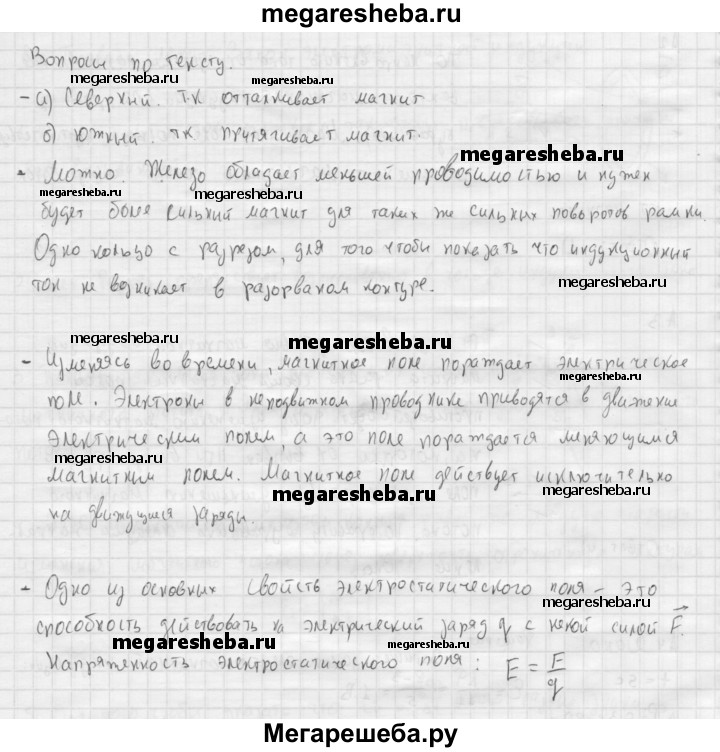 megaresheba.ru
Вопросы по тексту.
megaresheba.ru megaresheba.ru
- а) Северный. т.к отталкивает магнит
б) Южный. тк притягивает магнит.
megaresheba.ru
- Можно. Железо обладает меньшей проводимостью и нужен
megaresheba.ru megaresheba.ru
будет более сильный магнит для таких же сильных поворотов рамки.
Одно кольцо с разрезом, для того чтобы показать что индукционный
megaresheba.ru
ток не возникает в разорваном контуре.
megaresheba.ru
megaresheba.ru
- Изменяясь во времени, магнитное поле пораждает электрическое
megaresheba.ru
поле. Электроны в неподвижном проводнике приводятся в движение
электрическим полем, а это поле пораждается меняющимся
megaresheba.ru
магнитным полем. Магнитное поле действует исключительно
megaresheba.ru megaresheba.ru
на движущиеся заряды.
- Одно из основных свойств электростатического поля – это
megaresheba.ru
способность действовать на электрический заряд q с некой силой F.
megaresheba.ru megaresheba.ru
Напряженность электростатического поля: E = F/q
Мегарешеба.ру